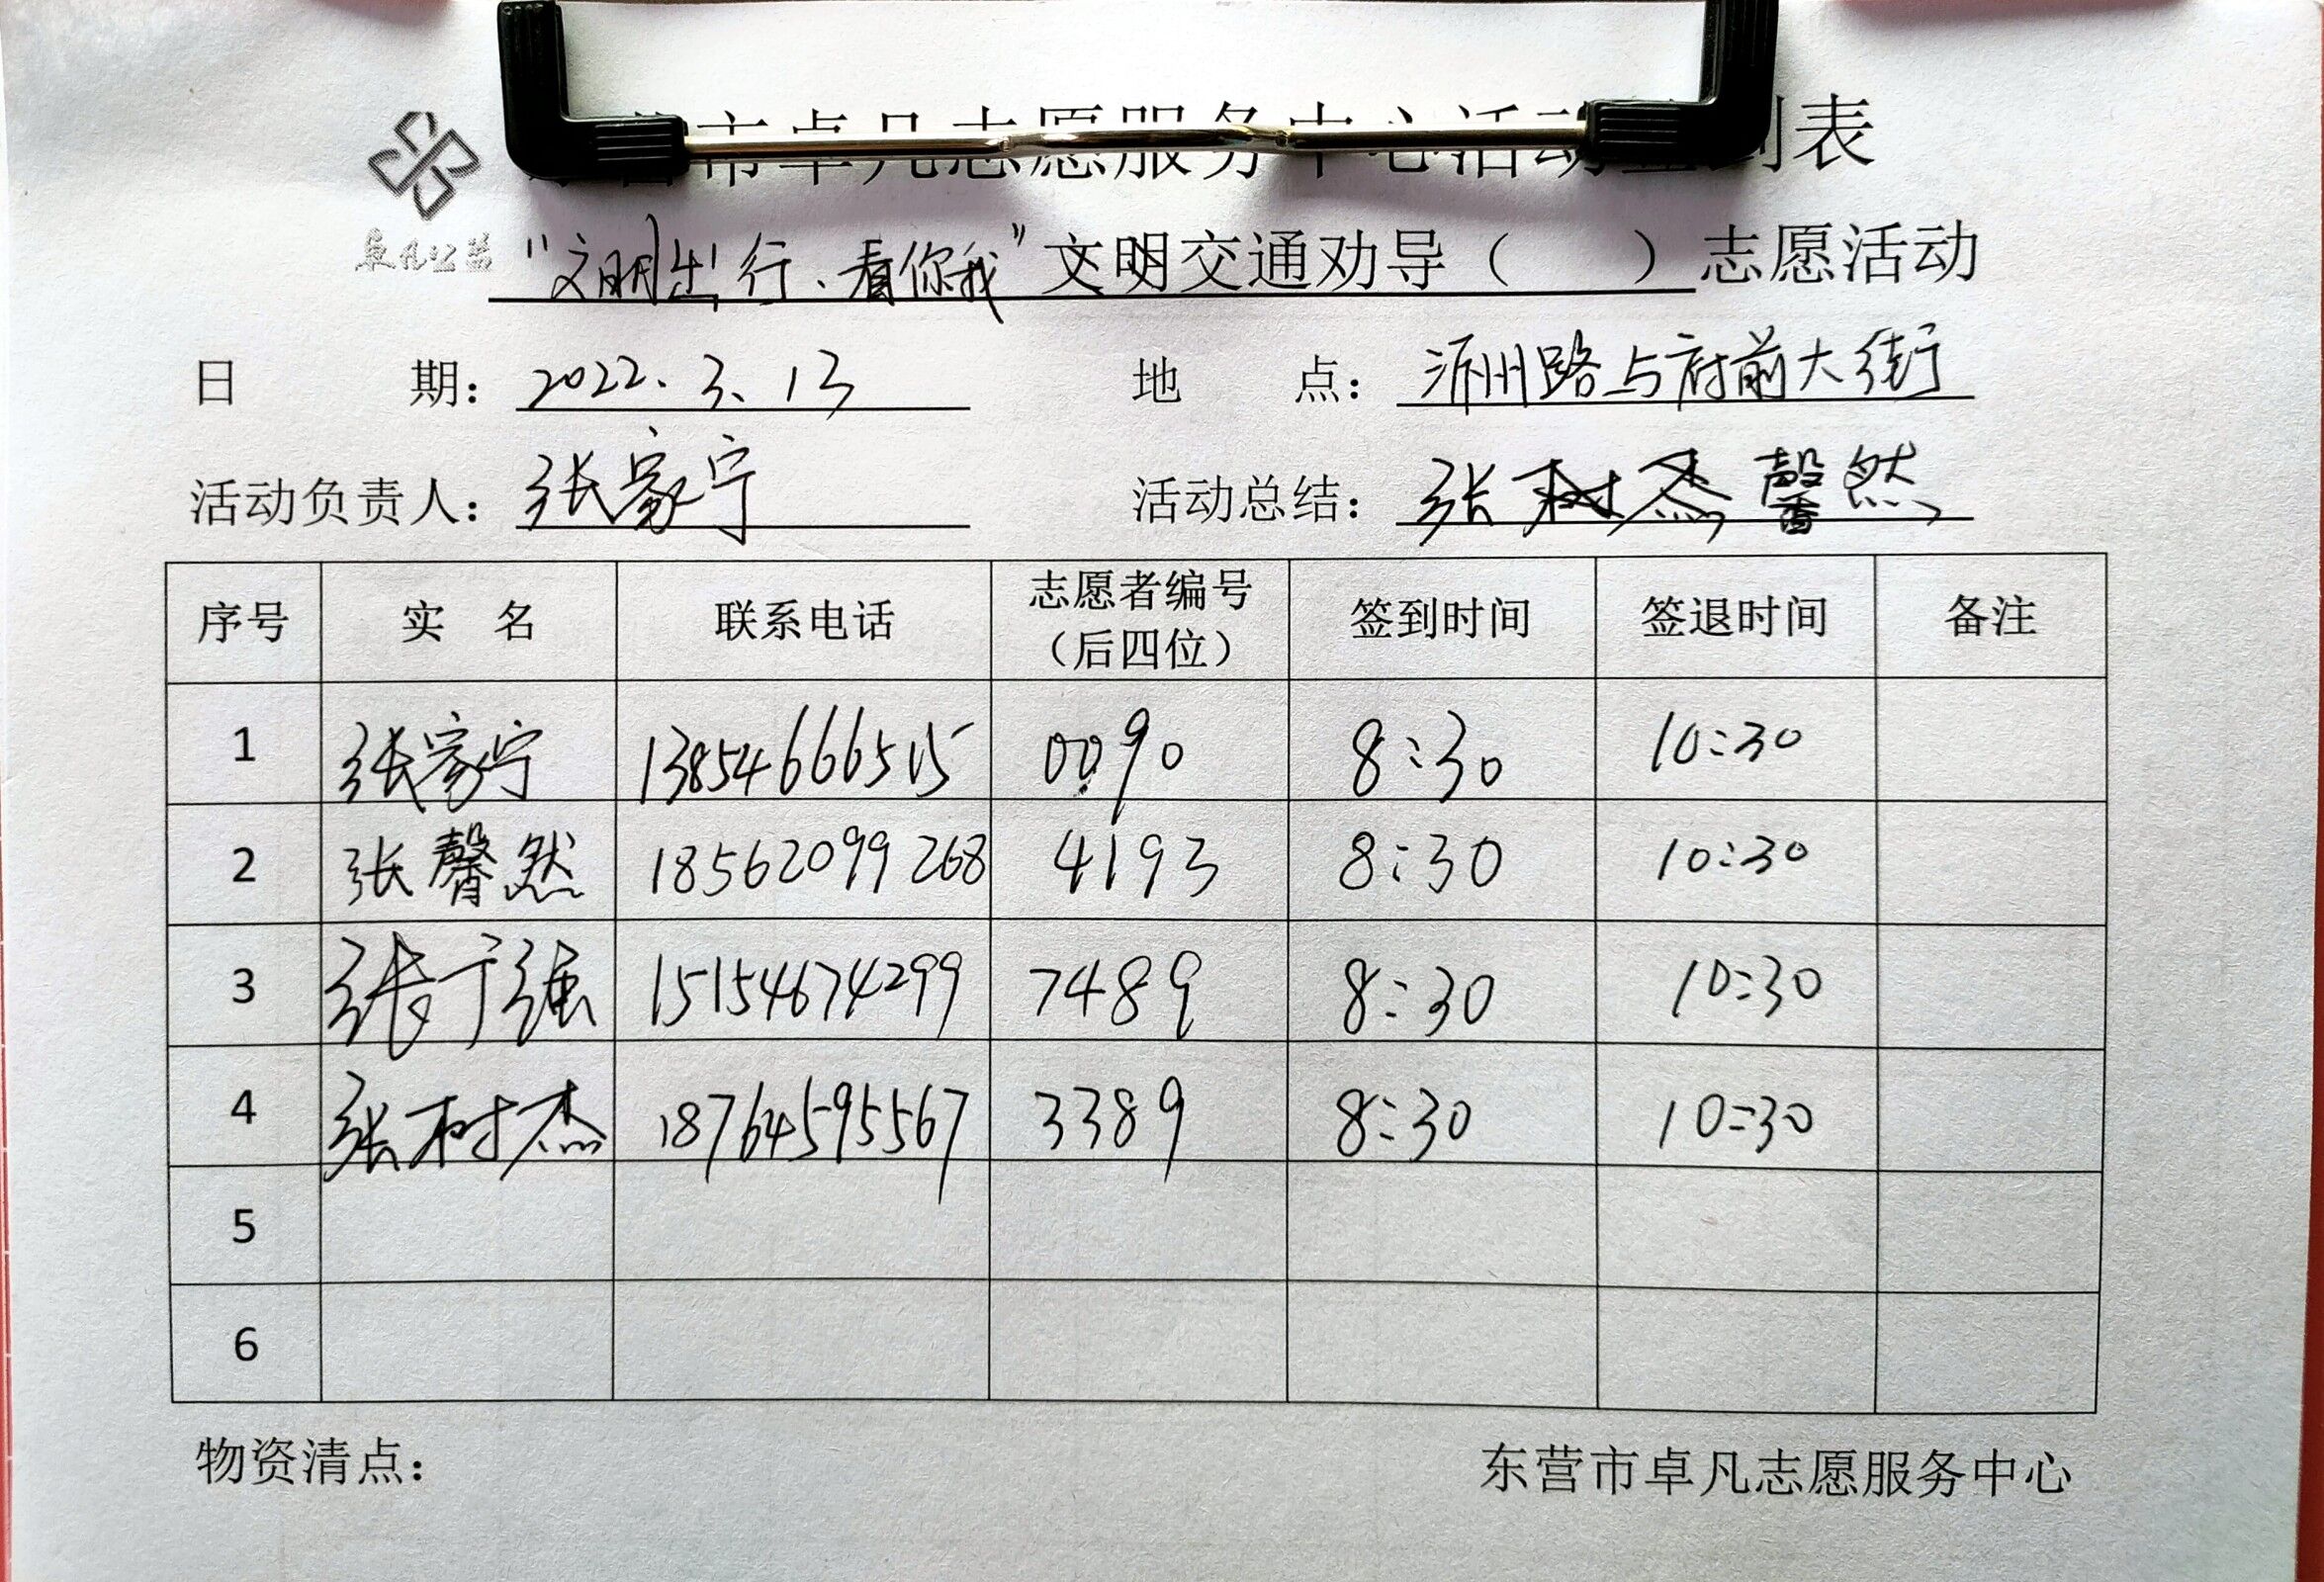 东营市卓凡志愿服务中心活动签到表
卓凡公益
“文明出行、看你我”文明交通劝导（ ）志愿活动
日 期： 2022.3.13 地 点： 沂州路与府前大街
活动负责人： 张家宁 活动总结： 张树杰馨然
序号 实 名 联系电话 志愿者编号（后四位） 签到时间 签退时间 备注
1 张家宁 13854666515 0090 8:30 10:30
2 张馨然 18562099268 4193 8:30 10:30
3 张于强 15154674299 7489 8:30 10:30
4 张树杰 18764595567 3389 8:30 10:30
5
6
物资清点： 东营市卓凡志愿服务中心